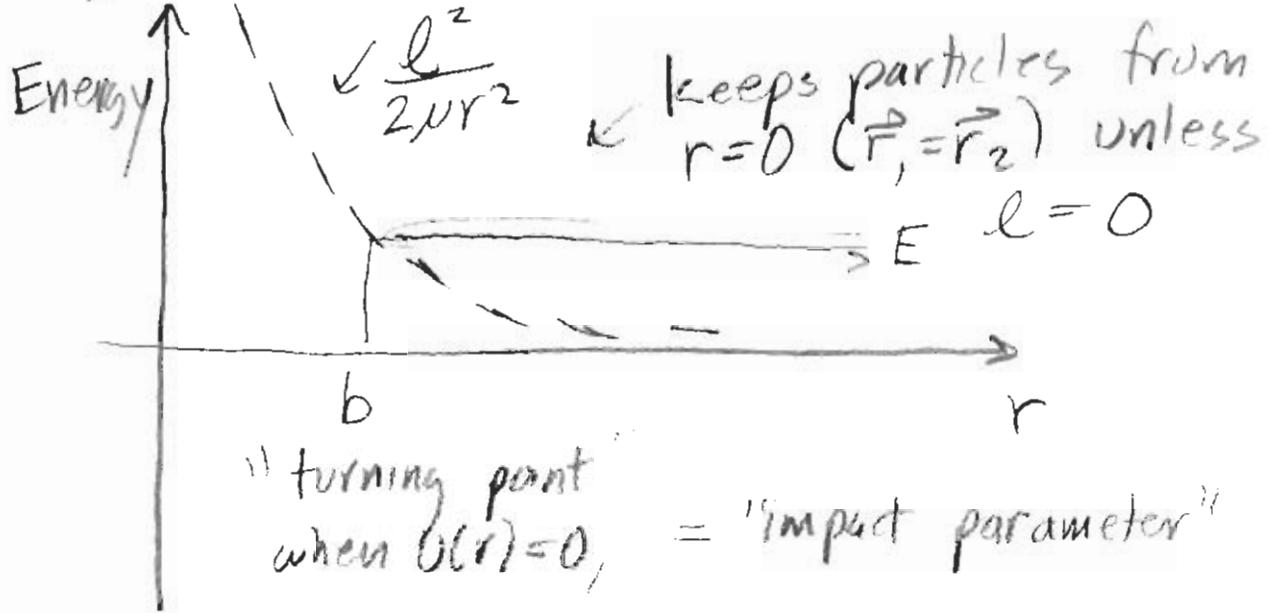 Energy
↙ l²/2μr²
↙ keeps particles from
r=0 (r⃗₁=r⃗₂) unless
l=0
E
b
r
"turning point"
when U(r)=0, = "impact parameter"